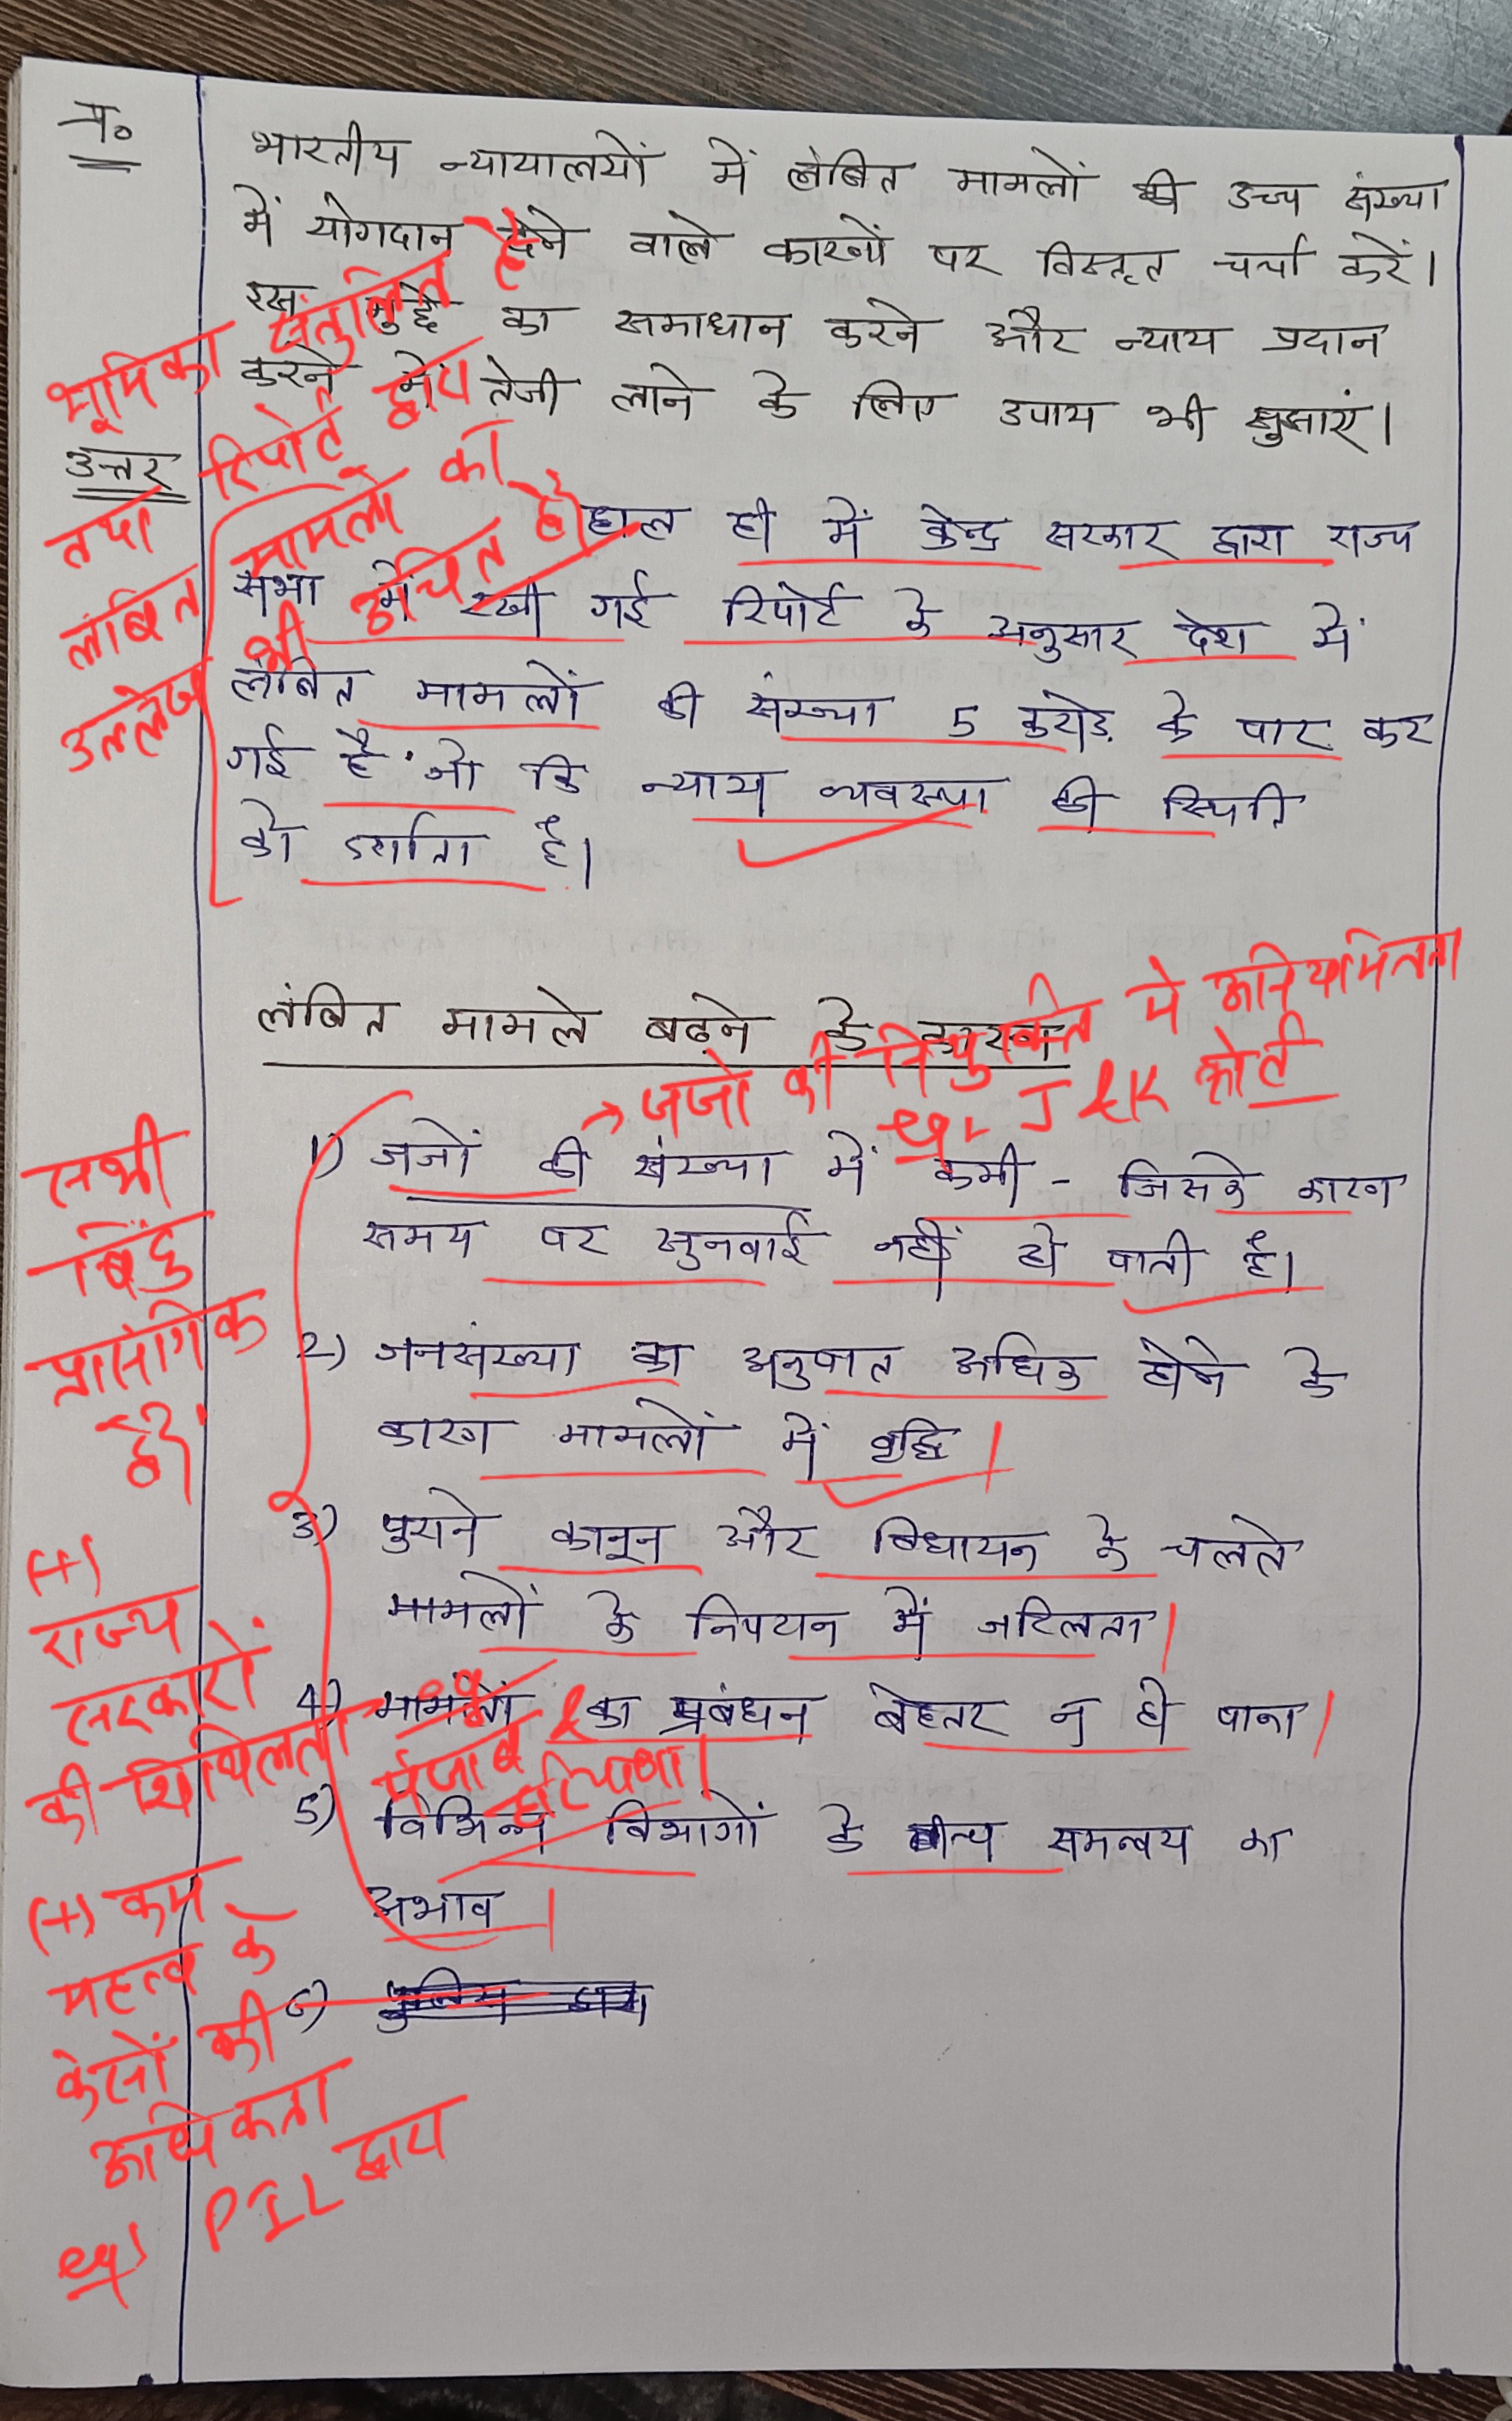 प्र०
भारतीय न्यायालयों में लंबित मामलों की उच्च संख्या
में योगदान देने वाले कारणों पर विस्तृत चर्चा करें।
इस मुद्दे का समाधान करने और न्याय प्रदान
करने में तेजी लाने के लिए उपाय भी सुझाएं।
भूमिका संतुलित है
तथा रिपोर्ट द्वारा
लंबित मामलों का
उल्लेख भी उचित है।
उत्तर
हाल ही में केन्द्र सरकार द्वारा राज्य
सभा में रखी गई रिपोर्ट के अनुसार देश में
लंबित मामलों की संख्या 5 करोड़ के पार कर
गई है जो कि न्याय व्यवस्था की स्थिति
को दर्शाता है।
लंबित मामले बढ़ने के कारण
→ जजों की नियुक्ति में अनियमितता
eg. J&K कोर्ट
1) जजों की संख्या में कमी - जिसके कारण
समय पर सुनवाई नहीं हो पाती है।
2) जनसंख्या का अनुपात अधिक होने के
कारण मामलों में वृद्धि
3) पुराने कानून और विधायन के चलते
मामलों के निपटान में जटिलता
4) मामलों का प्रबंधन बेहतर न हो पाना
5) विभिन्न विभागों के बीच समन्वय का
अभाव
6)
सभी
बिंदु
प्रासंगिक
है।
(+)
राज्य
सरकारों
की शिथिलता
पंजाब &
हरियाणा।
(+) कम
महत्व के
केसों की
अधिकता
eg) PIL द्वारा